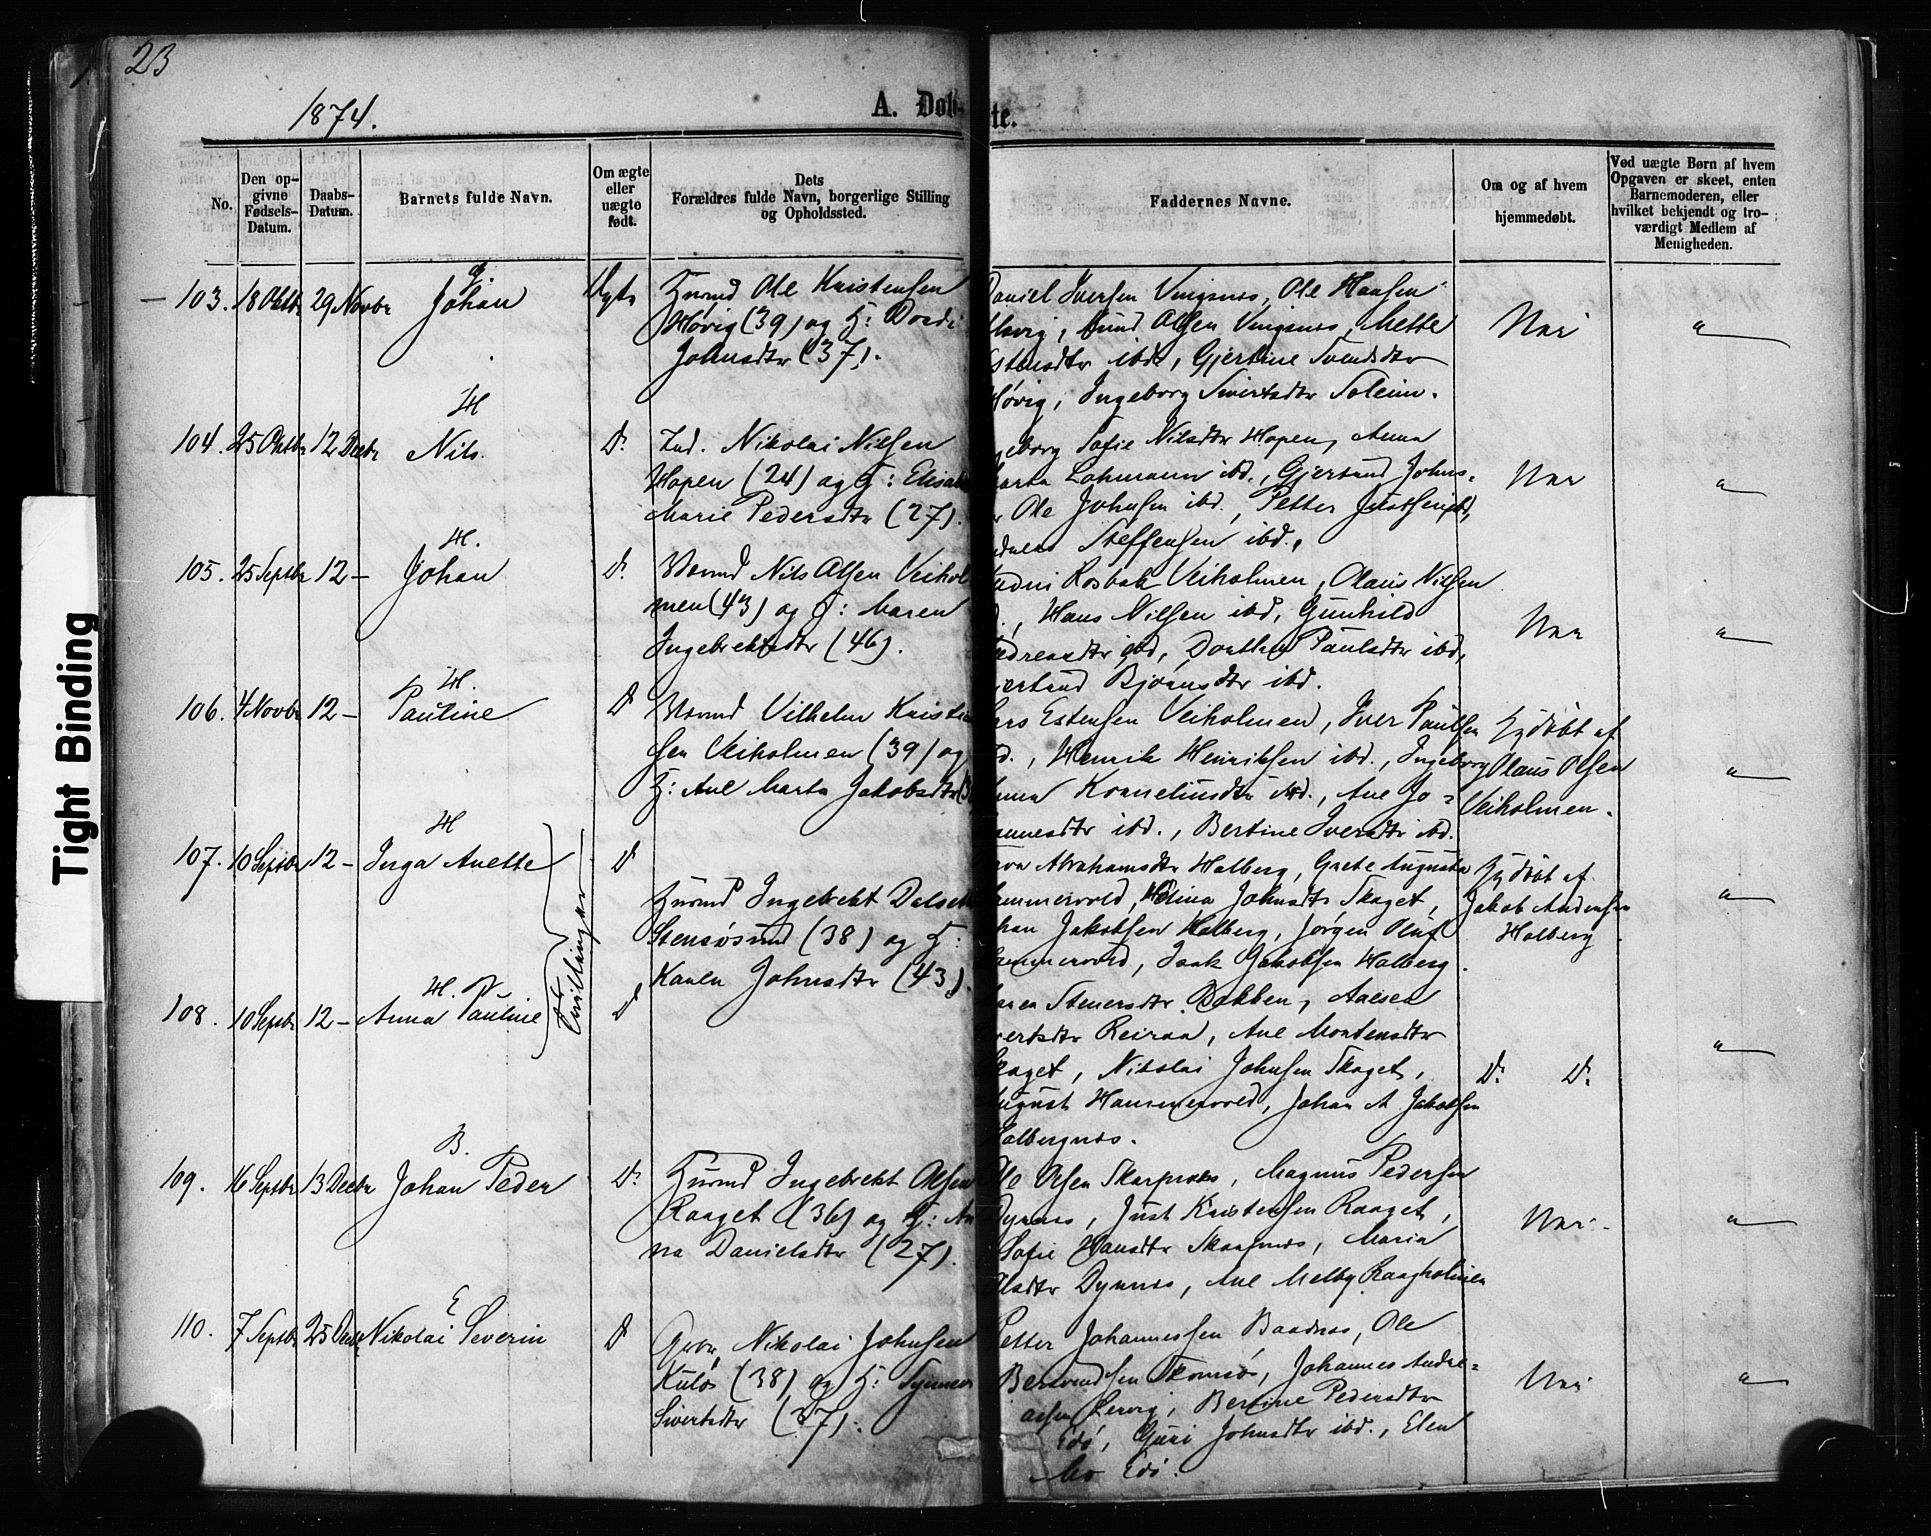 23
1874.
A. Døb-
te.
No.
Den op-
givne
Fødsels-
Datum.
Daabs-
Datum.
Barnets fulde Navn.
Om ægte
eller
uægte
født.
Dets
Forældres fulde Navn, borgerlige Stilling
og Opholdssted.
Faddernes Navne.
Om og af hvem
hjemmedøbt.
Ved uægte Børn af hvem
Opgaven er skeet, enten
Barnemoderen, eller
hvilket bekjendt og tro-
værdigt Medlem af
Menigheden.
103. 18 Oktbr 29 Novbr Johan Ægte
Ole Kristensen
Høvig (39) og H: Dordi
Johnsdtr (37).
Daniel Iversen Vingsnes, Ole Hansen
Olsen Vingsnes, Mette
Estensdtr ibd., Gjertine Svendsdtr
Høvig, Ingeborg Sivertsdtr Soleim.
Nei "
H
104. 25 Oktbr 12 Decbr Nils. Do
Ind. Nikolai Nilsen
Hopen (24) og H: Elisab
Marie Pedersdtr (27).
geborg Sofie Nilsdtr Hopen, Anna
Marta Lohmann ibd., Gjertrud Johns-
Ole Johnsen ibd., Petter
Steffensen ibd.
Nei "
H.
105. 25 Septbr 12 - Johan Do
Nils Olsen Veihol
men (43) og H: Maren
Ingebrektsdtr (46).
Rosbak Veiholmen, Olaus Nilsen
Hans Nilsen ibd., Gunhild
Andreasdtr ibd., Dorthea Paulsdtr ibd.,
Gjertrud Bjørnsdtr ibd.
Nei "
H.
106. 4 Novbr 12 - Pauline Do
Vilhelm Kristian
sen Veiholmen (39) og
H: Ane Marta Jakobsdtr (3
Lars Estensen Veiholmen, Iver Paulsen
ibd., Henrik Henriksen ibd., Ingeborg
Anna Korneliusdtr ibd., Ane Jo-
hannesdtr ibd., Bertine Iversdtr ibd.
Hjdøbt af
Olaus Olsen
Veiholmen.
"
H
107. 10 Septbr 12 - Inga Anette Do
Tvillinger
Ingebrekt Dalseth
Stensøsund (38) og H:
Karen Johnsdtr (43).
Abrahamsdtr Halberg, Grete Augusta
Hammervold, Johnsdtr Skaget,
Johan Jakobsen Halberg, Jørgen Oluf
Hammervold, Isak Jakobsen Halberg.
Hjdøbt af
Jakob Andersen
Halberg
"
H.
108. 10 Septbr 12 - Anna Pauline Do
Maren Steuersdtr Bakken,
vertsdtr Reiraa, Ane Mortensdtr
Skaget, Nikolai Johnsen Skaget,
August Hammervold, Johan A Jakobsen
Halbergnes.
Do Do
"
B.
109. 16 Septbr 13 Decbr Johan Peder Do
Ingebrekt Olsen
Raaget (36) og H: An
na Danielsdtr (27).
Ole Olsen Skarpnes, Magnus Pedersen
Dyrnes, Just Kristensen Raaget,
Sofie Hansdtr Skarpnes, Maria
Olsdtr Dyrnes, Ane Melby Raagholmen
Nei "
E
110. 7 Septbr 25 Decbr Nikolai Severin Do
Nikolai Johnsen
Kuløs (38) og H: Synnev
Sivertsdtr (37).
Petter Johannessen Baadnes, Ole
Berendsen Skomsø, Johannes Andre-
asen Lervig, Bertine Pedersdtr
Edø, Guri Johnsdtr ibd., Elen
Mo Edø.
Nei "
Tight Binding